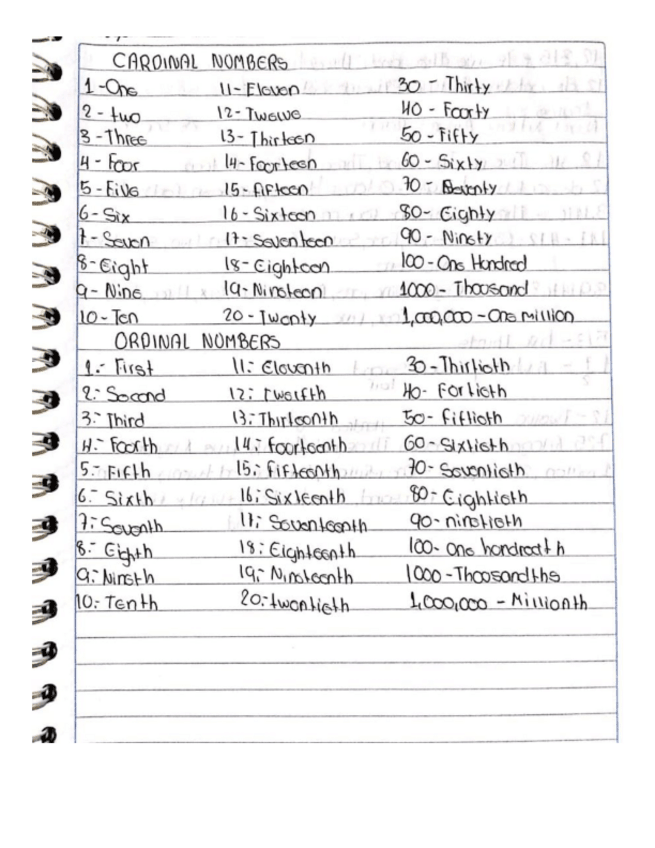 CARDINAL NUMBERS
1-One 11-Eleven 30-Thirty
2-two 12-Twelve 40-Foorty
3-Three 13-Thirteen 50-Fifty
4-Foor 14-Foorteen 60-Sixty
5-Five 15-Fifteen 70-Seventy
6-Six 16-Sixteen 80-Eighty
7-Seven 17-Seventeen 90-Ninety
8-Eight 18-Eighteen 100-One Hondred
9-Nine 19-Nineteen 1000-Thoosand
10-Ten 20-Twenty 1,000,000-One Million
ORDINAL NUMBERS
1.- First 11.- Eleventh 30-Thirtieth
2.- Second 12.- Twelfth 40-Fortieth
3.- Third 13.- Thirteenth 50-Fiftieth
4.- Foorth 14.- foorteenth 60-Sixtieth
5.- Fifth 15.- Fifteenth 70-Seventieth
6.- Sixth 16.- Sixteenth 80-Eightieth
7.- Seventh 17.- Seventeenth 90-ninetieth
8.- Eighth 18.- Eighteenth 100-One hondreath
9.- Nineth 19.- Nineteenth 1000-Thoosandths
10.- Tenth 20.- twentieth 1,000,000-Millionth